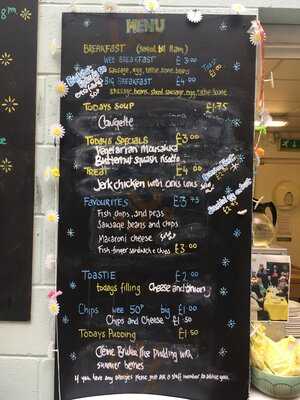 MENU
BREAKFAST (served till 11am)
WEE BREAKFAST £3.00
sausage, egg, tattie scone, beans
BIG BREAKFAST
TODAYS SOUP £1.75
Courgette
TODAYS SPECIALS £3.00
Vegetarian Moussaka
Butternut squash risotto
TREAT £4.00
Jerk chicken with cous cous
FAVOURITES £3.75
Fish, chips, and peas
Sausage beans and chips
Macaroni cheese
Fish finger sandwich & chips £3.00
TOASTIE £2.00
todays filling Cheese and onion
Chips wee 50P big £1.00
Chips and Cheese £1.50
TODAYS PUDDING £1.50
Crème Brulee rice pudding with
summer berries
If you have any allergies please just ask a staff member to advise you.